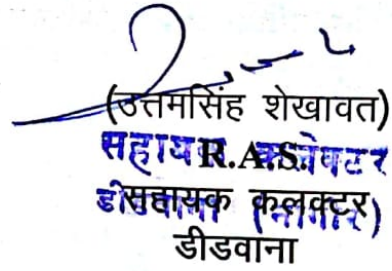 (उत्तमसिंह शेखावत)
R.A.S.
सहायक कलक्टर
डीडवाना
सहायक कलेक्टर
डीडवाना (नागौर)